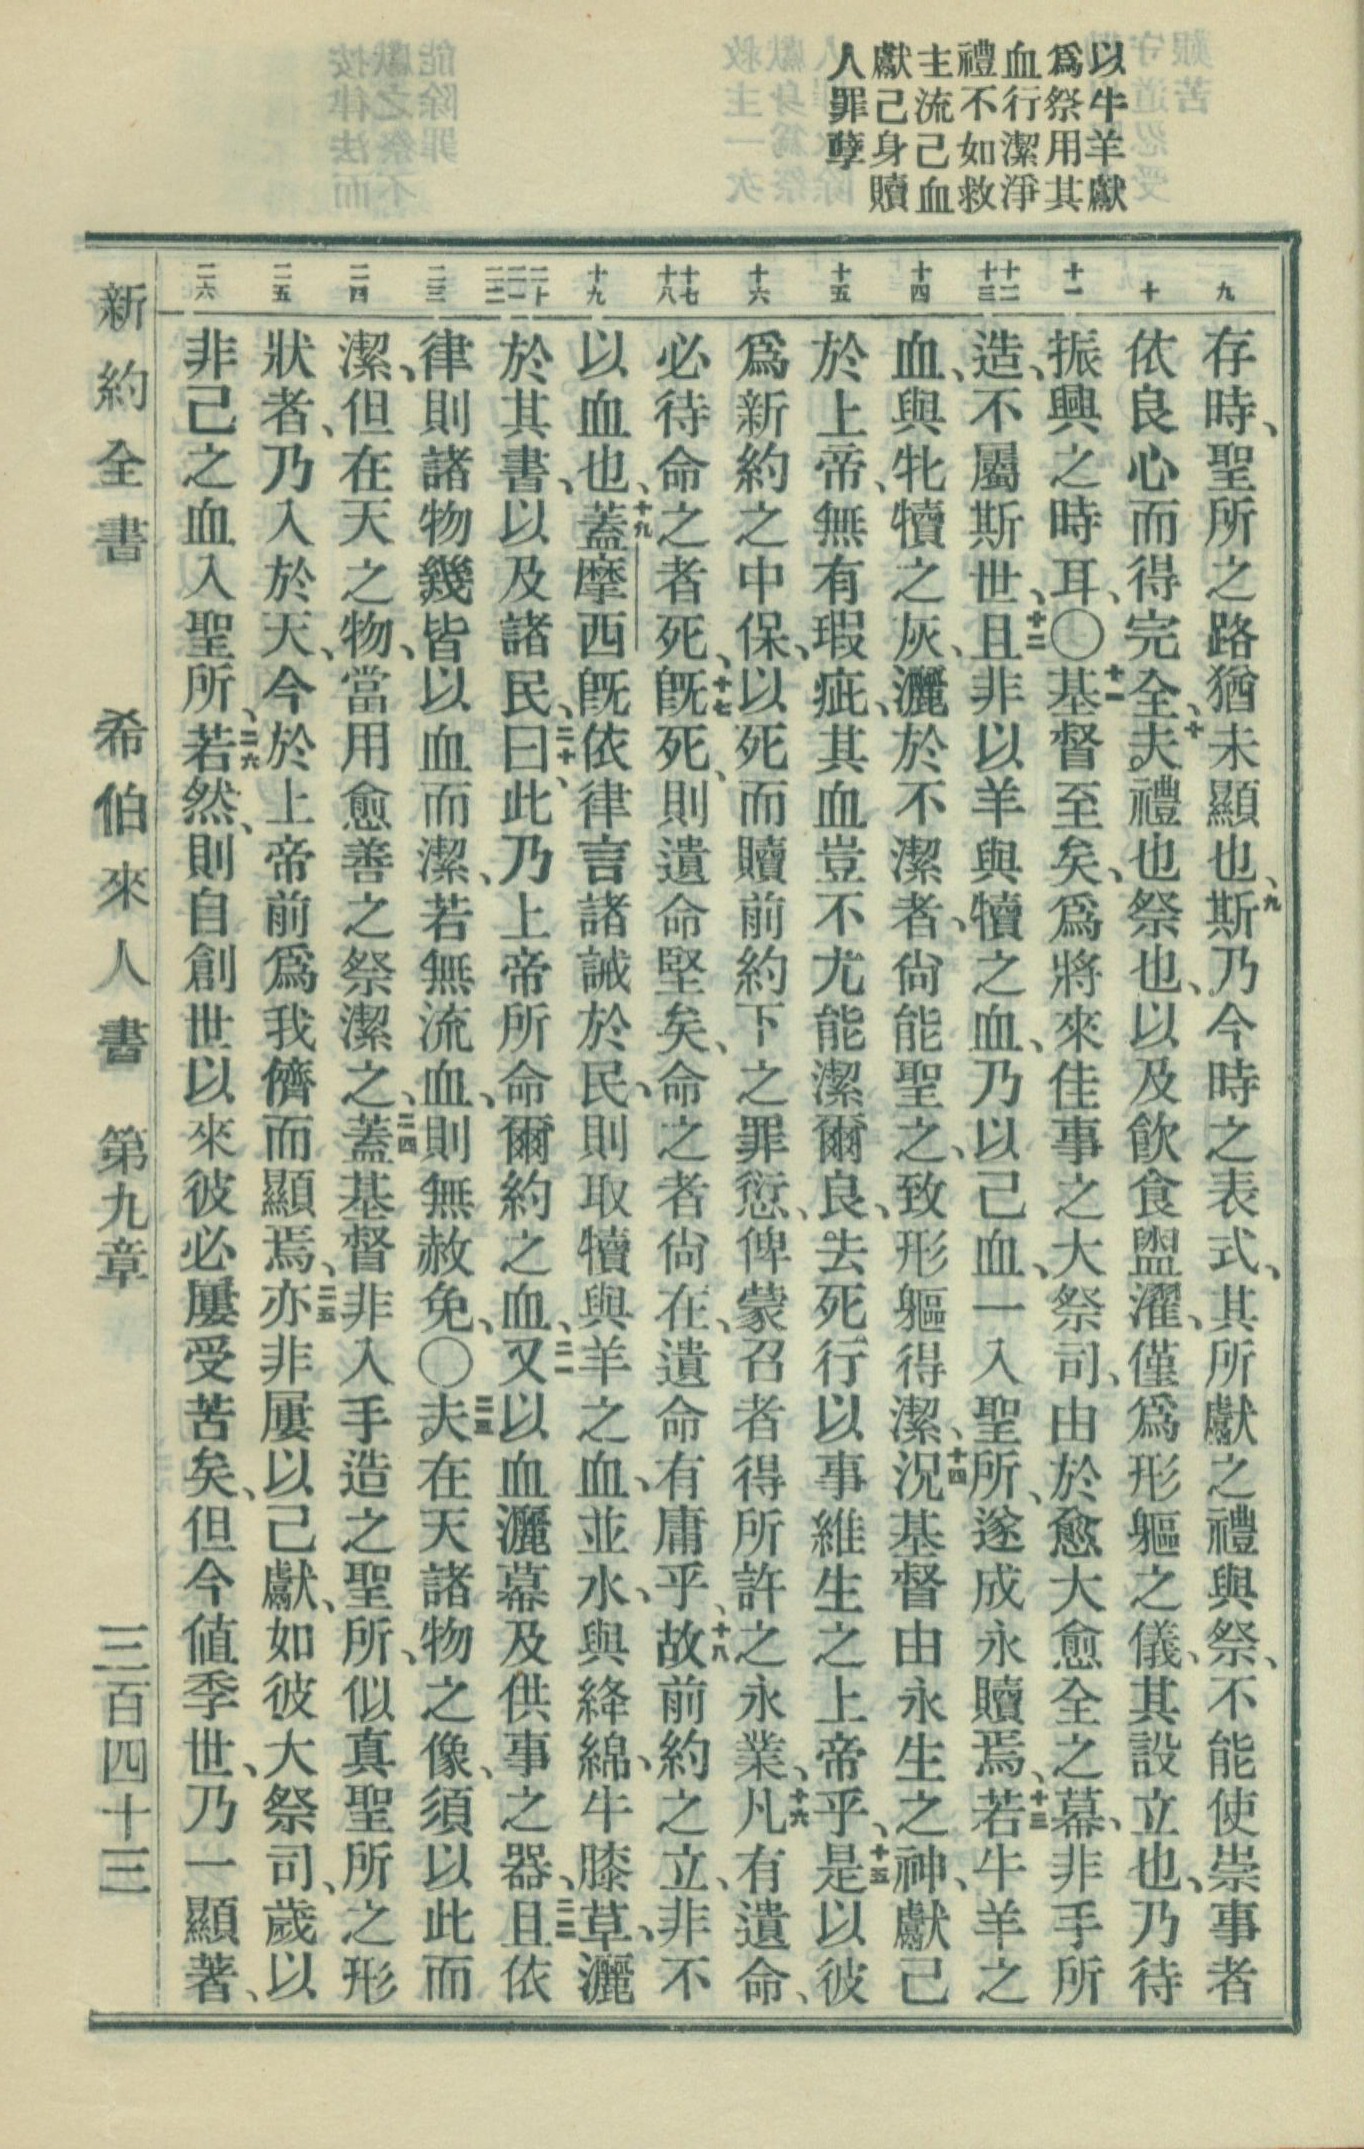 以牛羊獻
爲祭用其
血行潔淨
禮不如救
主流己血
獻己身贖
人罪孽
九
十
十一
十二
十三
十四
十五
十六
十七
十八
十九
二十
二一
二二
二三
二四
二五
二六
存時、聖所之路猶未顯也、九斯乃今時之表式、其所獻之禮與祭、不能使崇事者
依良心而得完全、十夫禮也祭也、以及飲食盥濯、僅爲形軀之儀、其設立也、乃待
振興之時耳、〇十一基督至矣、爲將來佳事之大祭司、由於愈大愈全之幕、非手所
造、不屬斯世、十二且非以羊與犢之血、乃以己血、一入聖所、遂成永贖焉、十三若牛羊之
血、與牝犢之灰、灑於不潔者、尙能聖之、致形軀得潔、十四況基督由永生之神、獻己
於上帝、無有瑕疵、其血豈不尤能潔爾良、去死行以事維生之上帝乎、十五是以彼
爲新約之中保、以死而贖前約下之罪愆、俾蒙召者得所許之永業、十六凡有遺命、
必待命之者死、十七旣死、則遺命堅矣、命之者尙在、遺命有庸乎、十八故前約之立、非不
以血也、十九蓋摩西旣依律言諸誡於民、則取犢與羊之血、並水、與絳綿、牛膝草、灑
於其書、以及諸民、二十曰、此乃上帝所命爾約之血、二一又以血灑幕及供事之器、二二且依
律則諸物幾皆以血而潔、若無流血、則無赦免、〇二三夫在天諸物之像、須以此而
潔、但在天之物、當用愈善之祭潔之、二四蓋基督非入手造之聖所、似真聖所之形
狀者、乃入於天、今於上帝前爲我儕而顯焉、二五亦非屢以己獻、如彼大祭司、歲以
非己之血入聖所、二六若然、則自創世以來、彼必屢受苦矣、但今値季世、乃一顯著、
新約全書 希伯來人書 第九章 三百四十三